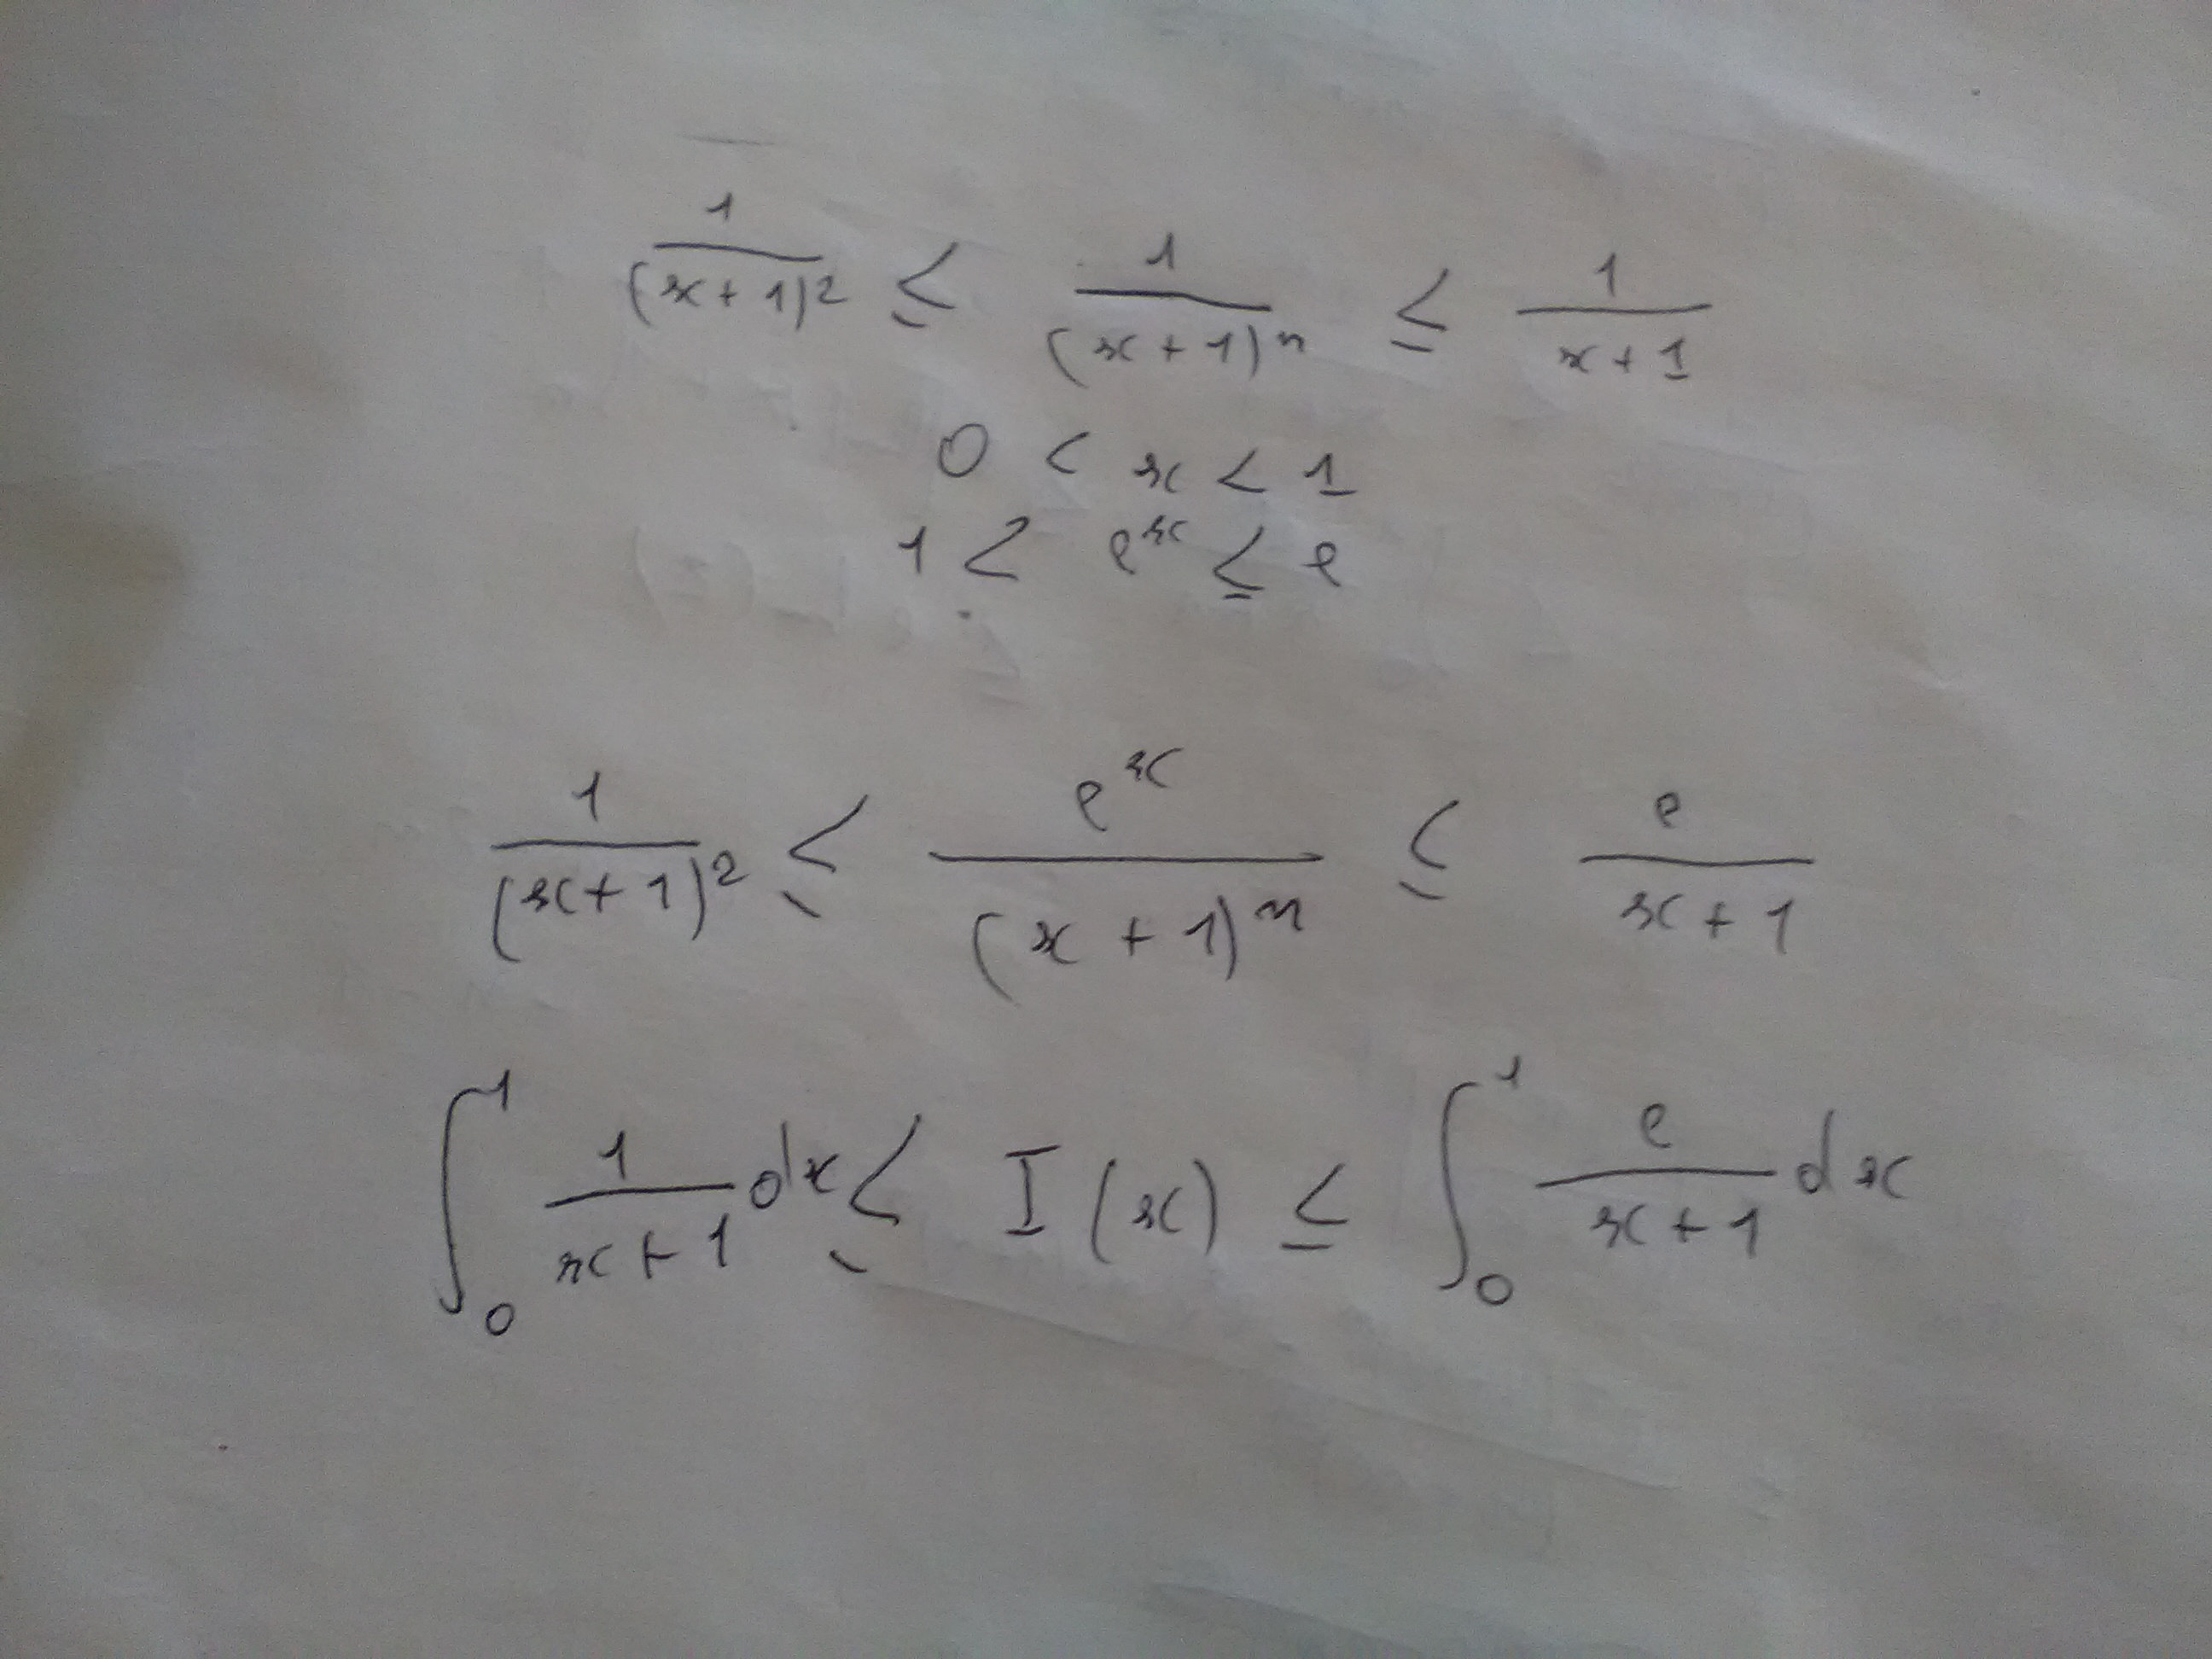 1/(x+1)² ≤ 1/(x+1)ⁿ ≤ 1/(x+1)
0 < x < 1
1 < eˣ ≤ e
1/(x+1)² ≤ eˣ/(x+1)ⁿ ≤ e/(x+1)
∫₀¹ 1/(x+1) dx ≤ I(x) ≤ ∫₀¹ e/(x+1) dx